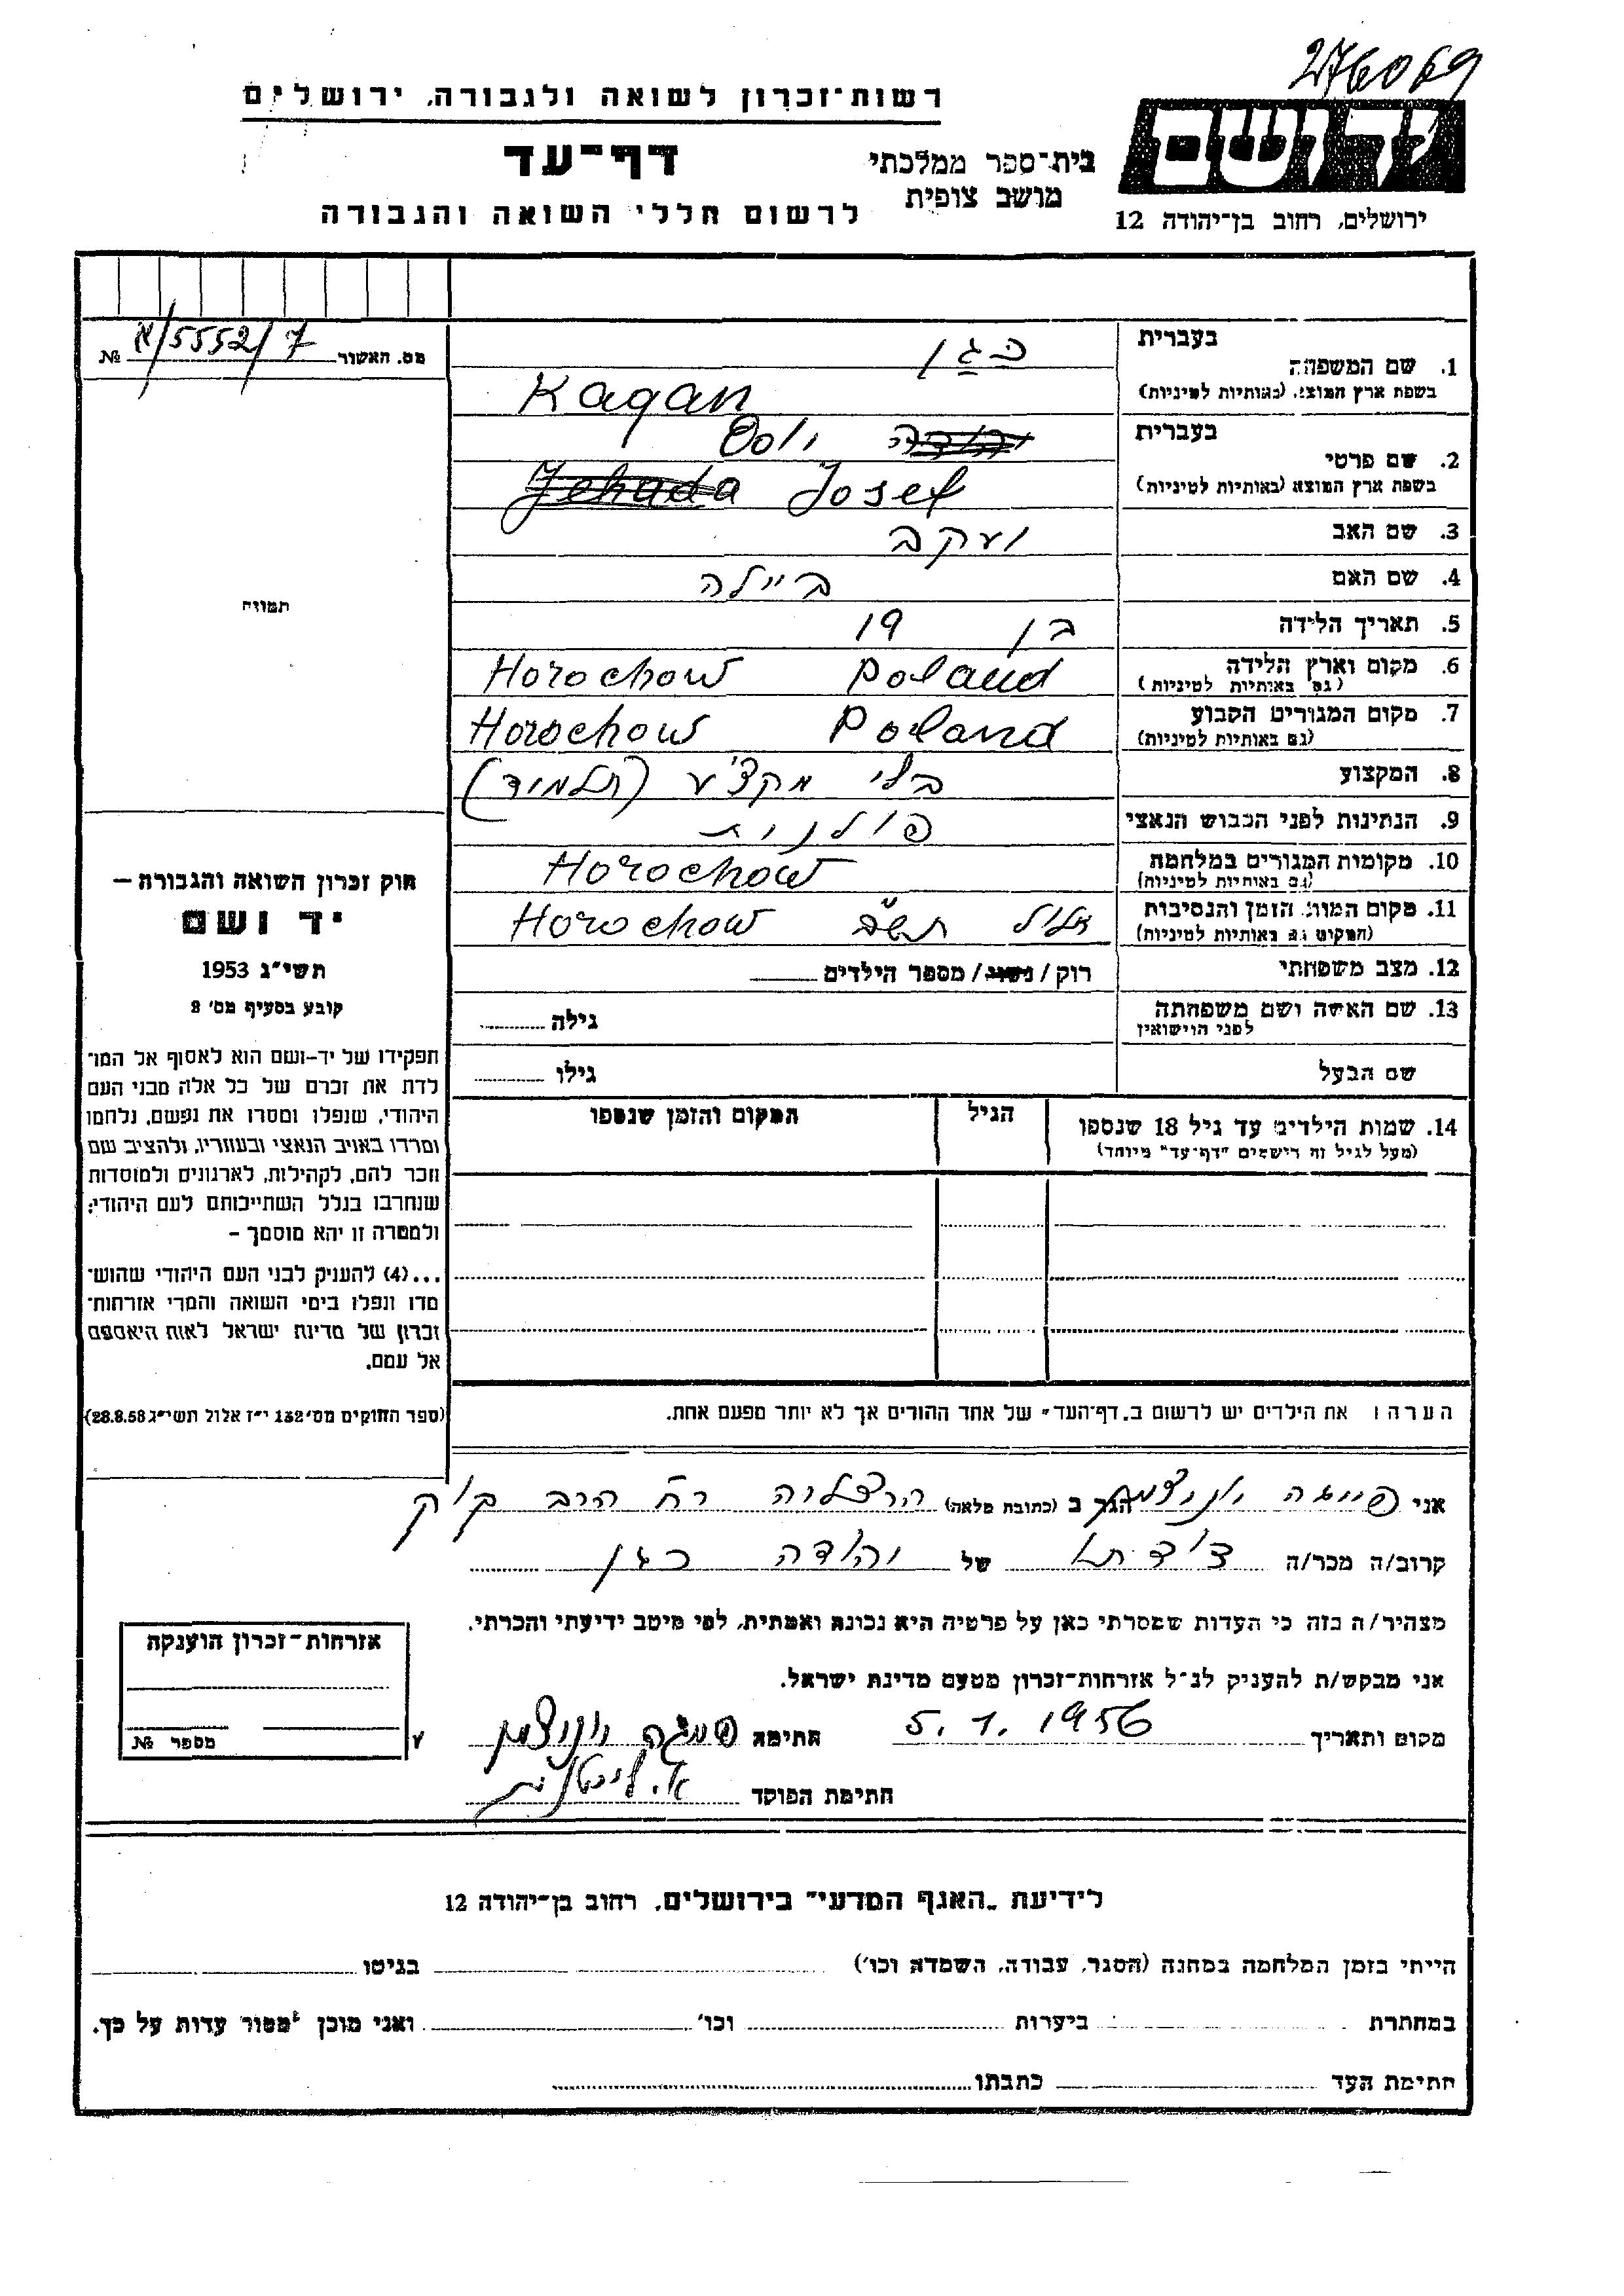 276069
רשות-זכרון לשואה ולגבורה, ירושלים
יד ושם
ירושלים, רחוב בן-יהודה 12
בית-ספר ממלכתי
מושב צופית
דף-עד
לרשום חללי השואה והגבורה
מס. האשור א/5552/7 №
תמונה
בעברית
1. שם המשפחה כגן
בשפת ארץ המוצא (באותיות לטיניות) Kagan
בעברית
2. שם פרטי יוסף
בשפת ארץ המוצא (באותיות לטיניות) Jehuda Josef
3. שם האב יעקב
4. שם האם ביילה
5. תאריך הלידה בן 19
6. מקום וארץ הלידה Horochow Poland
(גם באותיות לטיניות)
7. מקום המגורים הקבוע Horochow Poland
(גם באותיות לטיניות)
8. המקצוע בלי מקצוע (תלמיד)
9. הנתינות לפני הכבוש הנאצי פולנית
10. מקומות המגורים במלחמה Horochow
(גם באותיות לטיניות)
11. מקום המות, הזמן והנסיבות אלול תש"ב Horochow
(המקום גם באותיות לטיניות)
12. מצב משפחתי רוק / נשוי / מספר הילדים
13. שם האשה ושם משפחתה גילה
לפני הנישואין
שם הבעל גילו
14. שמות הילדים עד גיל 18 שנספו הגיל המקום והזמן שנספו
(מעל לגיל זה רישמים "דף-עד" מיוחד)
הערה: את הילדים יש לרשום ב"דף-העד" של אחד ההורים אך לא יותר מפעם אחת.
חוק זכרון השואה והגבורה –
יד ושם
תשי"ג 1953
קובע בסעיף מס' 2
תפקידו של יד-ושם הוא לאסוף אל המו־
לדת את זכרם של כל אלה מבני העם
היהודי, שנפלו ומסרו את נפשם, נלחמו
ומרדו באויב הנאצי ובעוזריו, ולהציב שם
וזכר להם, לקהילות, לארגונים ולמוסדות
שנחרבו בגלל השתייכותם לעם היהודי;
ולמטרה זו יהא מוסמך –
...(4) להעניק לבני העם היהודי שהוש־
מדו ונפלו בימי השואה והמרי אזרחות־
זכרון של מדינת ישראל לאות היאספם
אל עמם.
(ספר החוקים מס' 132 י"ז אלול תשי"ג 28.8.53)
אני פייגה הגר ב (כתובת מלאה) הרצליה רח הרב קוק
קרוב/ה מכר/ה דודתו של יהודה כגן
מצהיר/ה בזה כי העדות שמסרתי כאן על פרטיה היא נכונה ואמתית, לפי מיטב ידיעתי והכרתי.
אני מבקש/ת להעניק לנ"ל אזרחות-זכרון מטעם מדינת ישראל.
מקום ותאריך 5.1.1956 חתימה פייגה
חתימת הפוקד
אזרחות-זכרון הוענקה
מספר №
לידיעת "האגף המדעי" בירושלים, רחוב בן-יהודה 12
הייתי בזמן המלחמה במחנה (הסגר, עבודה, השמדה וכו') בגיטו
במחתרת ביערות וכו' ואני מוכן למסור עדות על כך.
חתימת העד כתבתו